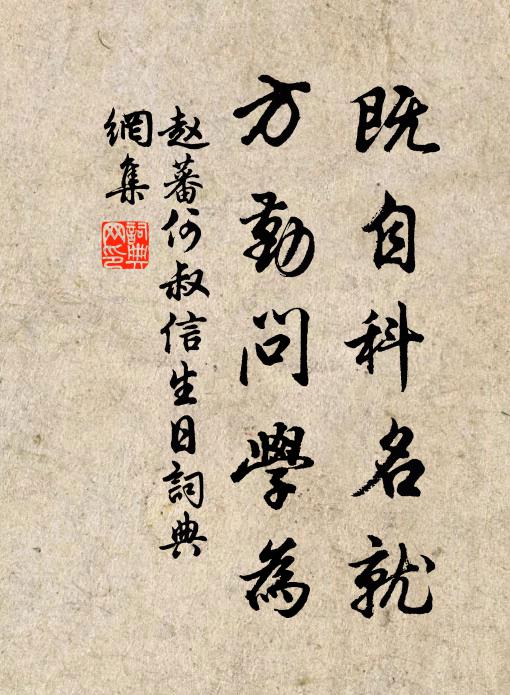 既自科名就
方勤問學為
赵蕃何叔信生日詞典
網集
詞典網印